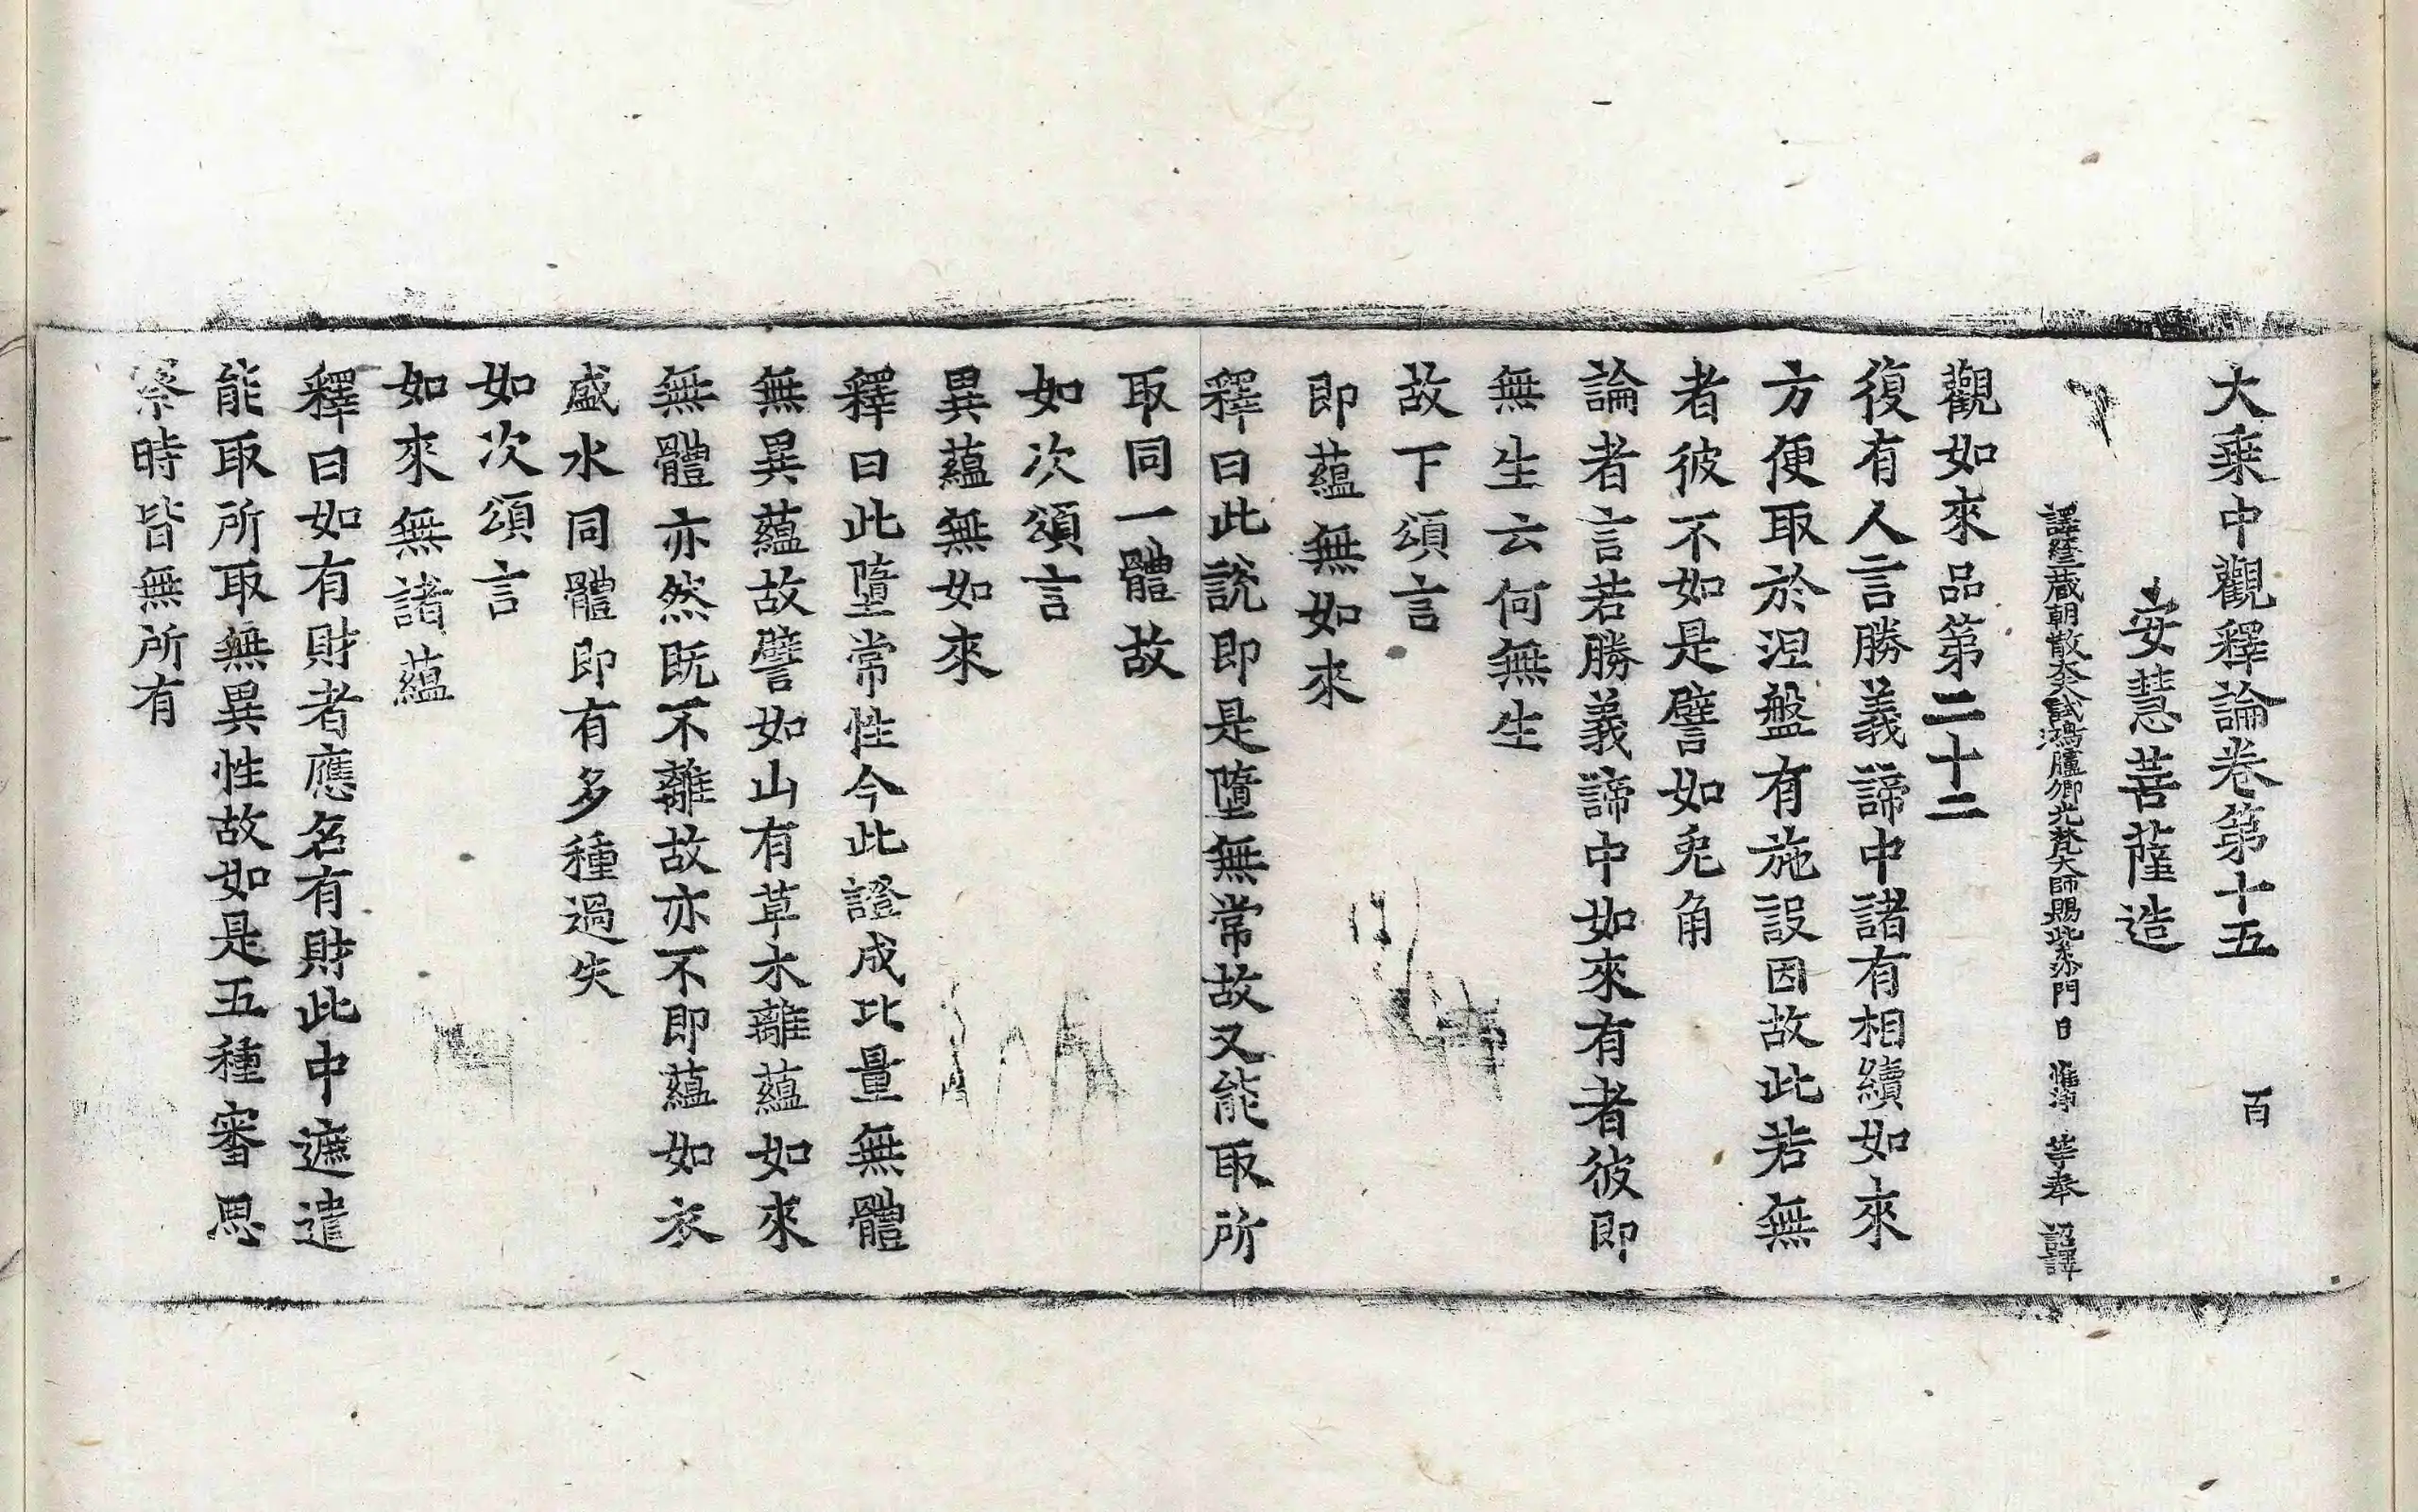 大乘中觀釋論卷第十五 百
安慧菩薩造
譯經三藏朝散大夫試鴻臚卿光梵大師賜紫沙門臣 惟淨 等奉 詔譯
觀如來品第二十二
復有人言勝義諦中諸有相續如來
方便取於涅盤有施設因故此若無
者彼不如是譬如兎角
論者言若勝義諦中如來有者彼即
無生云何無生
故下頌言
即蘊無如來
釋曰此說即是墮無常故又能取所
取同一體故
如次頌言
異蘊無如來
釋曰此墮常性今此證成比量無體
無異蘊故譬如山有草木離蘊如來
無體亦然既不離故亦不即蘊如衣
盛水同體即有多種過失
如次頌言
如來無諸蘊
釋曰如有財者應名有財此中遮遣
能取所取無異性故如是五種審思
察時皆無所有